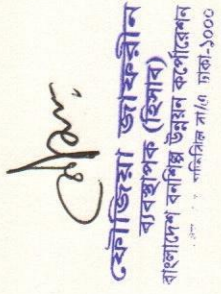 ফৌজিয়া জাফরীন
ব্যবস্থাপক (হিসাব)
বাংলাদেশ বনশিল্প উন্নয়ন কর্পোরেশন
বা/এ ঢাকা-১০০০